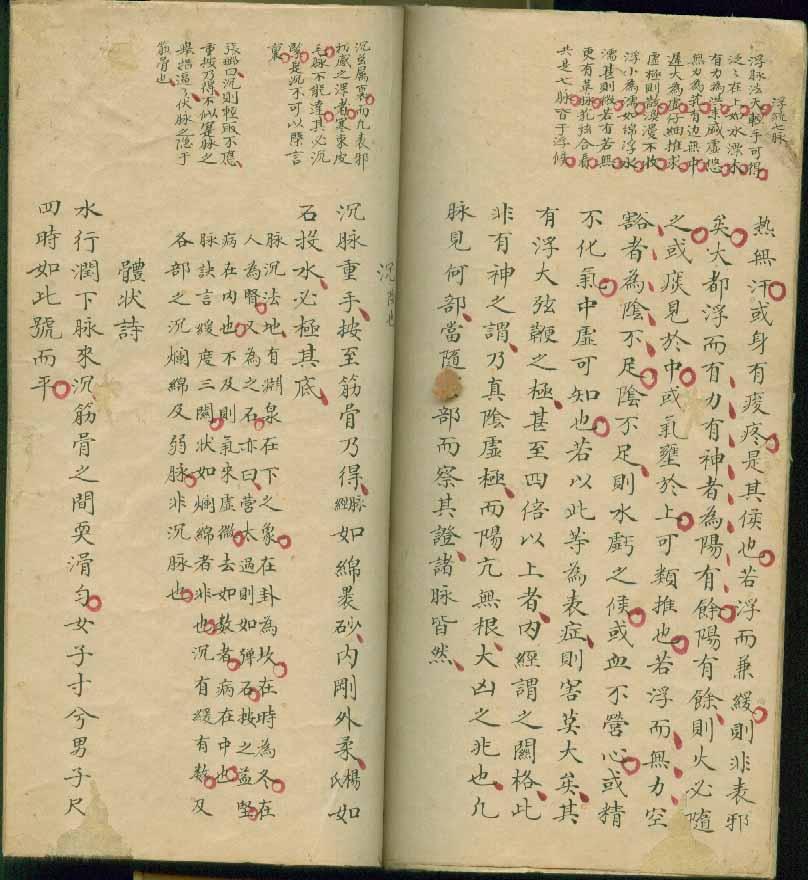 浮脉法天輕手可得
泛〻在上如水漂木
有力為洪来盛去悠
無力為芤有边無中
遲大為虛仔細推求
虛極則散漫漫不收
浮小為濡如綿浮水
濡甚則微若有若無
更有革脉芤弦合看
共是七脉皆于浮候
熱無汗或身有痠疼是其候也若浮而兼緩則非表邪
矣大都浮而有力有神者為陽有餘陽有餘則火必隨
之或痰見於中或氣壅於上可類推也若浮而無力空
豁者為陰不足陰不足則水虧之候或血不營心或精
不化氣中虛可知也若以此等為表症則害莫大矣其
有浮大弦鞕之極甚至四倍以上者內經謂之關格此
非有神之謂乃真陰虛極而陽亢無根大凶之兆也凡
脉見何部當隨部而察其證諸脉皆然
沉虽属裏而凡表邪
初感之深者寒束皮
毛脉不能達其必沉
緊是沉不可以槩言
裏
張曰沉則輕取不應
重按乃得不似寔脉之
舉指逼〻伏脉之隐于
筋骨也
沉陰也
沉脉重手按至筋骨乃得脉經如綿裹砂內剛外柔楊氏如
石投水必極其底
脉沉法地有渊泉在下之象在卦為坎在時為冬在
人為腎又為之石亦曰營太過則如弹石按之益堅
病在內也不及則氣來虛微去如数者病在中也
脉訣言緩度三關状如爛綿者非也沉有緩有数及
各部之沉爛綿及弱脉非沉脉也
體状詩
水行潤下脉來沉筋骨之間耎滑勻女子寸兮男子尺
四時如此號而平